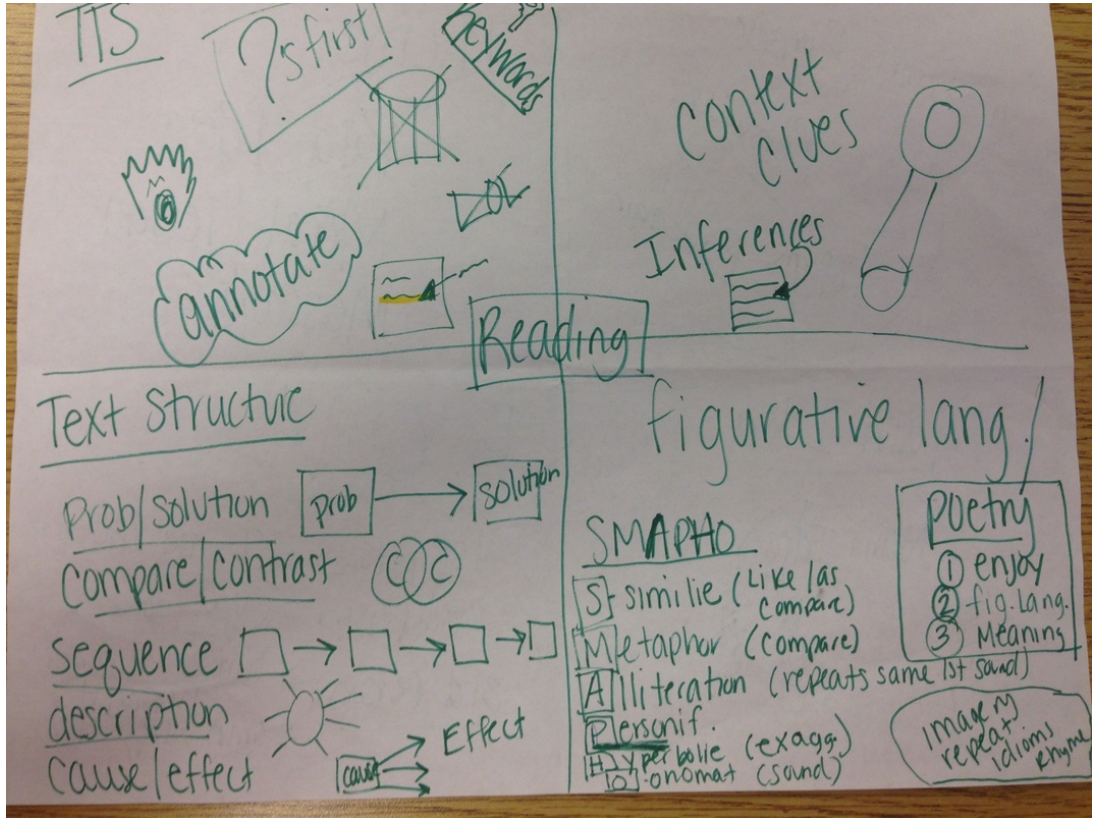 TTS
?'s first!
Keywords
annotate
Context
Clues
Inferences
Reading
Text Structure
Prob/solution
prob
solution
Compare/contrast
C C
sequence
description
cause/effect
cause
Effect
figurative lang.
SMAPHO
S- similie (Like/as
compare)
Metaphor (compare)
Alliteration (repeats same 1st sound)
Personif.
Hyperbolie (exagg.)
Onomat (sound)
Poetry
1 enjoy
2 fig. lang.
3 Meaning
imagery
repeat
idioms
rhyme